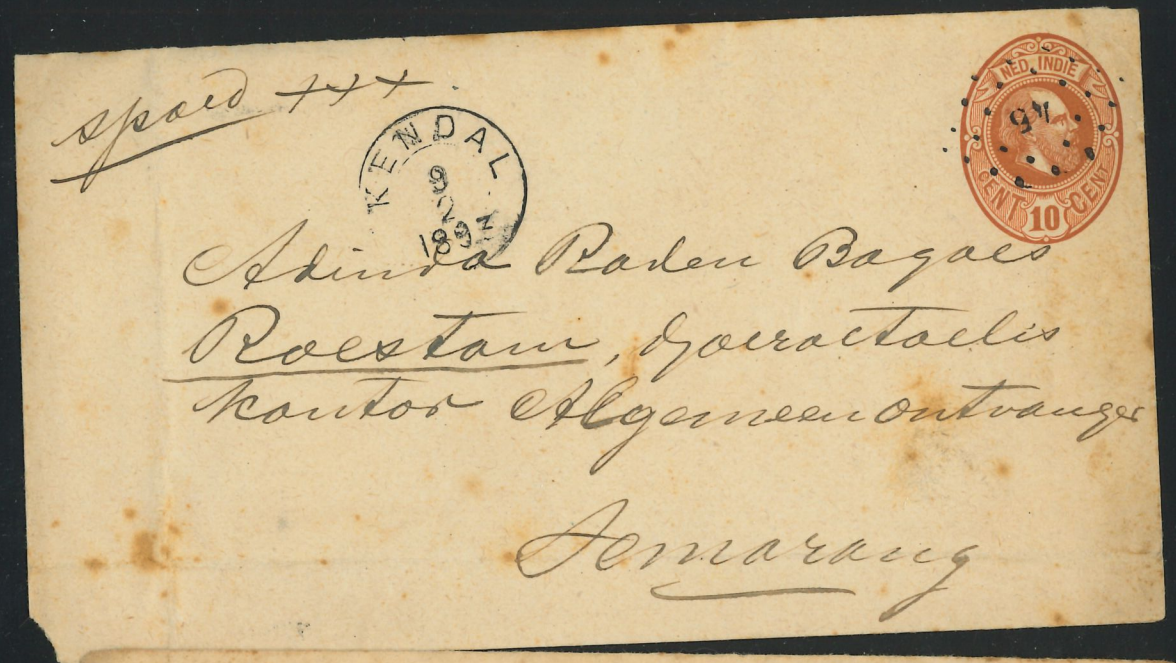 spoed +++
KENDAL
8
2
1893
NED. INDIE
45
CENT 10 CENT
Adinda Raden Bagoes
Roestam, djoeroetoelis
kantor Algemeenontvanger
Semarang